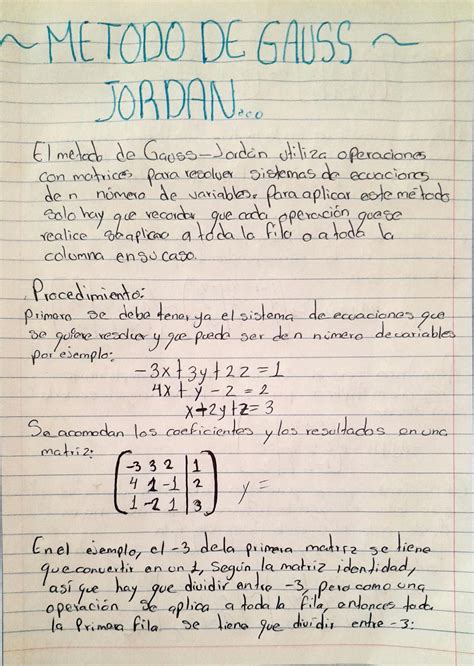 ~ METODO DE GAUSS ~
JORDAN...
El metodo de Gauss-Jordan utiliza operaciones
con matrices para resolver sistemas de ecuaciones
de n número de variables. Para aplicar este método
solo hay que recordar que cada operación que se
realice se aplicara a toda la fila o a toda la
columna en su caso.
Procedimiento:
primero se debe tener ya el sistema de ecuaciones que
se quiere resolver y que puede ser de n número de variables
por ejemplo:
-3x+3y+2z=1
4x+y-z=2
x-2y+z=3
Se acomodan los coeficientes y los resultados en una
matriz:
-3 3 2 | 1
4 1 -1 | 2 y =
1 -2 1 | 3
En el ejemplo, el -3 de la primera matriz se tiene
que convertir en un 1, según la matriz identidad,
así que hay que dividir entre -3, pero como una
operación se aplica a toda la fila, entonces toda
la Primera fila se tiene que dividir entre -3: